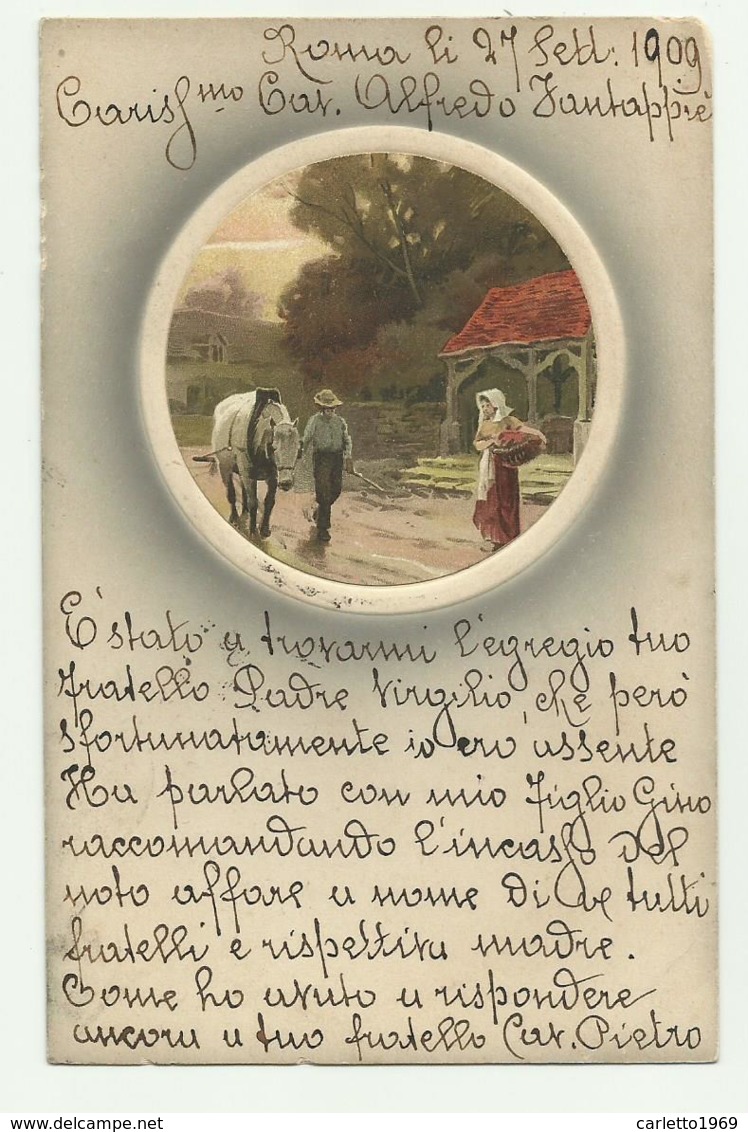 Roma li 27 Sett: 1909
Cariss.mo Cav. Alfredo Fantappiè
E' stato a trovarmi l'egregio tuo
fratello Padre Virgilio, che però
sfortunatamente io ero assente
Ha parlato con mio figlio Gino
raccomandando l'incasso del
noto affare a nome di tutti
fratelli e rispettiva madre.
Come ho avuto a rispondere
ancora a tuo fratello Cav. Pietro
delcampe.net
carletto1969